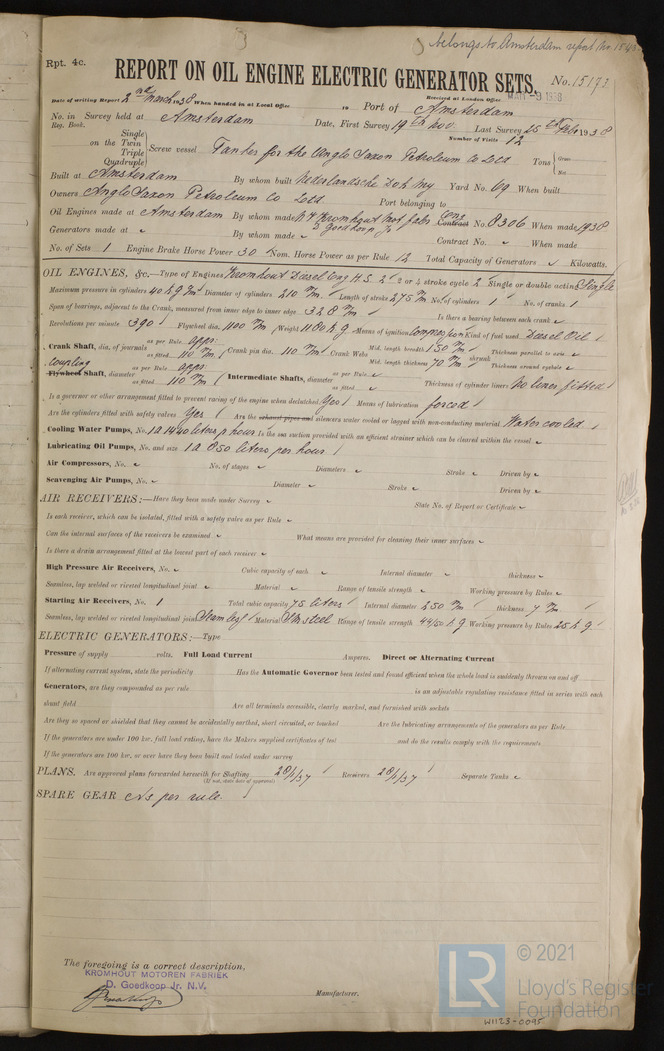 belongs to Amsterdam report No.
Rpt. 4c.
REPORT ON OIL ENGINE ELECTRIC GENERATOR SETS.
No. 15173
Date of writing Report 2nd March 1938 When handed in at Local Office 19 Port of Amsterdam
Received at London Office MAR -9 1938
No. in Survey held at Amsterdam Date, First Survey 19th Nov. Last Survey 25th Feb 1938
Reg. Book. Number of Visits 12
on the Single Twin Triple Quadruple Screw vessel Tanker for the Anglo Saxon Petroleum Co Ltd Tons Gross Net
Built at Amsterdam By whom built Nederlandsche Dok My Yard No. 69 When built
Owners Anglo Saxon Petroleum Co Ltd Port belonging to
Oil Engines made at Amsterdam By whom made Kromhout Mot fabr D Goedkoop Jr Contract Eng No. 8306 When made 1938
Generators made at By whom made Contract No. When made
No. of Sets 1 Engine Brake Horse Power 30 Nom. Horse Power as per Rule 12 Total Capacity of Generators Kilowatts.
OIL ENGINES, &c.—Type of Engines Kromhout Diesel Eng H.S. 2 or 4 stroke cycle 2 Single or double acting Single
Maximum pressure in cylinders 40 kg Diameter of cylinders 210 m/m Length of stroke 275 m/m No. of cylinders 1 No. of cranks 1
Span of bearings, adjacent to the Crank, measured from inner edge to inner edge 328 m/m Is there a bearing between each crank
Revolutions per minute 390 Flywheel dia. 1100 m/m Weight 1180 kg Means of ignition Compression Kind of fuel used Diesel Oil
Crank Shaft, dia. of journals as per Rule appr. as fitted 110 m/m Crank pin dia. 110 m/m Crank Webs Mid. length breadth 150 m/m Mid. length thickness 70 m/m Thickness parallel to axis shrunk Thickness around eyehole
Coupling
Flywheel Shaft, diameter as per Rule appr. as fitted 110 m/m Intermediate Shafts, diameter as per Rule as fitted Thickness of cylinder liners No liner fitted
Is a governor or other arrangement fitted to prevent racing of the engine when declutched Yes Means of lubrication forced
Are the cylinders fitted with safety valves Yes Are the exhaust pipes and silencers water cooled or lagged with non-conducting material Water cooled
Cooling Water Pumps, No. 1 a 1440 liters p hour Is the sea suction provided with an efficient strainer which can be cleared within the vessel
Lubricating Oil Pumps, No. and size 1 a 850 liters per hour
Air Compressors, No. No. of stages Diameters Stroke Driven by
Scavenging Air Pumps, No. Diameter Stroke Driven by
AIR RECEIVERS:—Have they been made under Survey State No. of Report or Certificate
Is each receiver, which can be isolated, fitted with a safety valve as per Rule
Can the internal surfaces of the receivers be examined What means are provided for cleaning their inner surfaces
Is there a drain arrangement fitted at the lowest part of each receiver
High Pressure Air Receivers, No. Cubic capacity of each Internal diameter thickness
Seamless, lap welded or riveted longitudinal joint Material Range of tensile strength Working pressure by Rules
Starting Air Receivers, No. 1 Total cubic capacity 75 liters Internal diameter 250 m/m thickness 7 m/m
Seamless, lap welded or riveted longitudinal joint Seamless Material SM steel Range of tensile strength 44/50 kg Working pressure by Rules 25 kg
ELECTRIC GENERATORS:—Type
Pressure of supply volts. Full Load Current Amperes. Direct or Alternating Current
If alternating current system, state the periodicity Has the Automatic Governor been tested and found efficient when the whole load is suddenly thrown on and off
Generators, are they compounded as per rule is an adjustable regulating resistance fitted in series with each
shunt field Are all terminals accessible, clearly marked, and furnished with sockets
Are they so spaced or shielded that they cannot be accidentally earthed, short circuited, or touched Are the lubricating arrangements of the generators as per Rule
If the generators are under 100 kw. full load rating, have the Makers supplied certificates of test and do the results comply with the requirements
If the generators are 100 kw. or over have they been built and tested under survey
PLANS. Are approved plans forwarded herewith for Shafting 28/1/37 Receivers 28/1/37 Separate Tanks
(If not, state date of approval)
SPARE GEAR As per rule
The foregoing is a correct description,
KROMHOUT MOTOREN FABRIEK
D. Goedkoop Jr. N.V.
Manufacturer.
LR
© 2021
Lloyd's Register
Foundation
W1123-0095